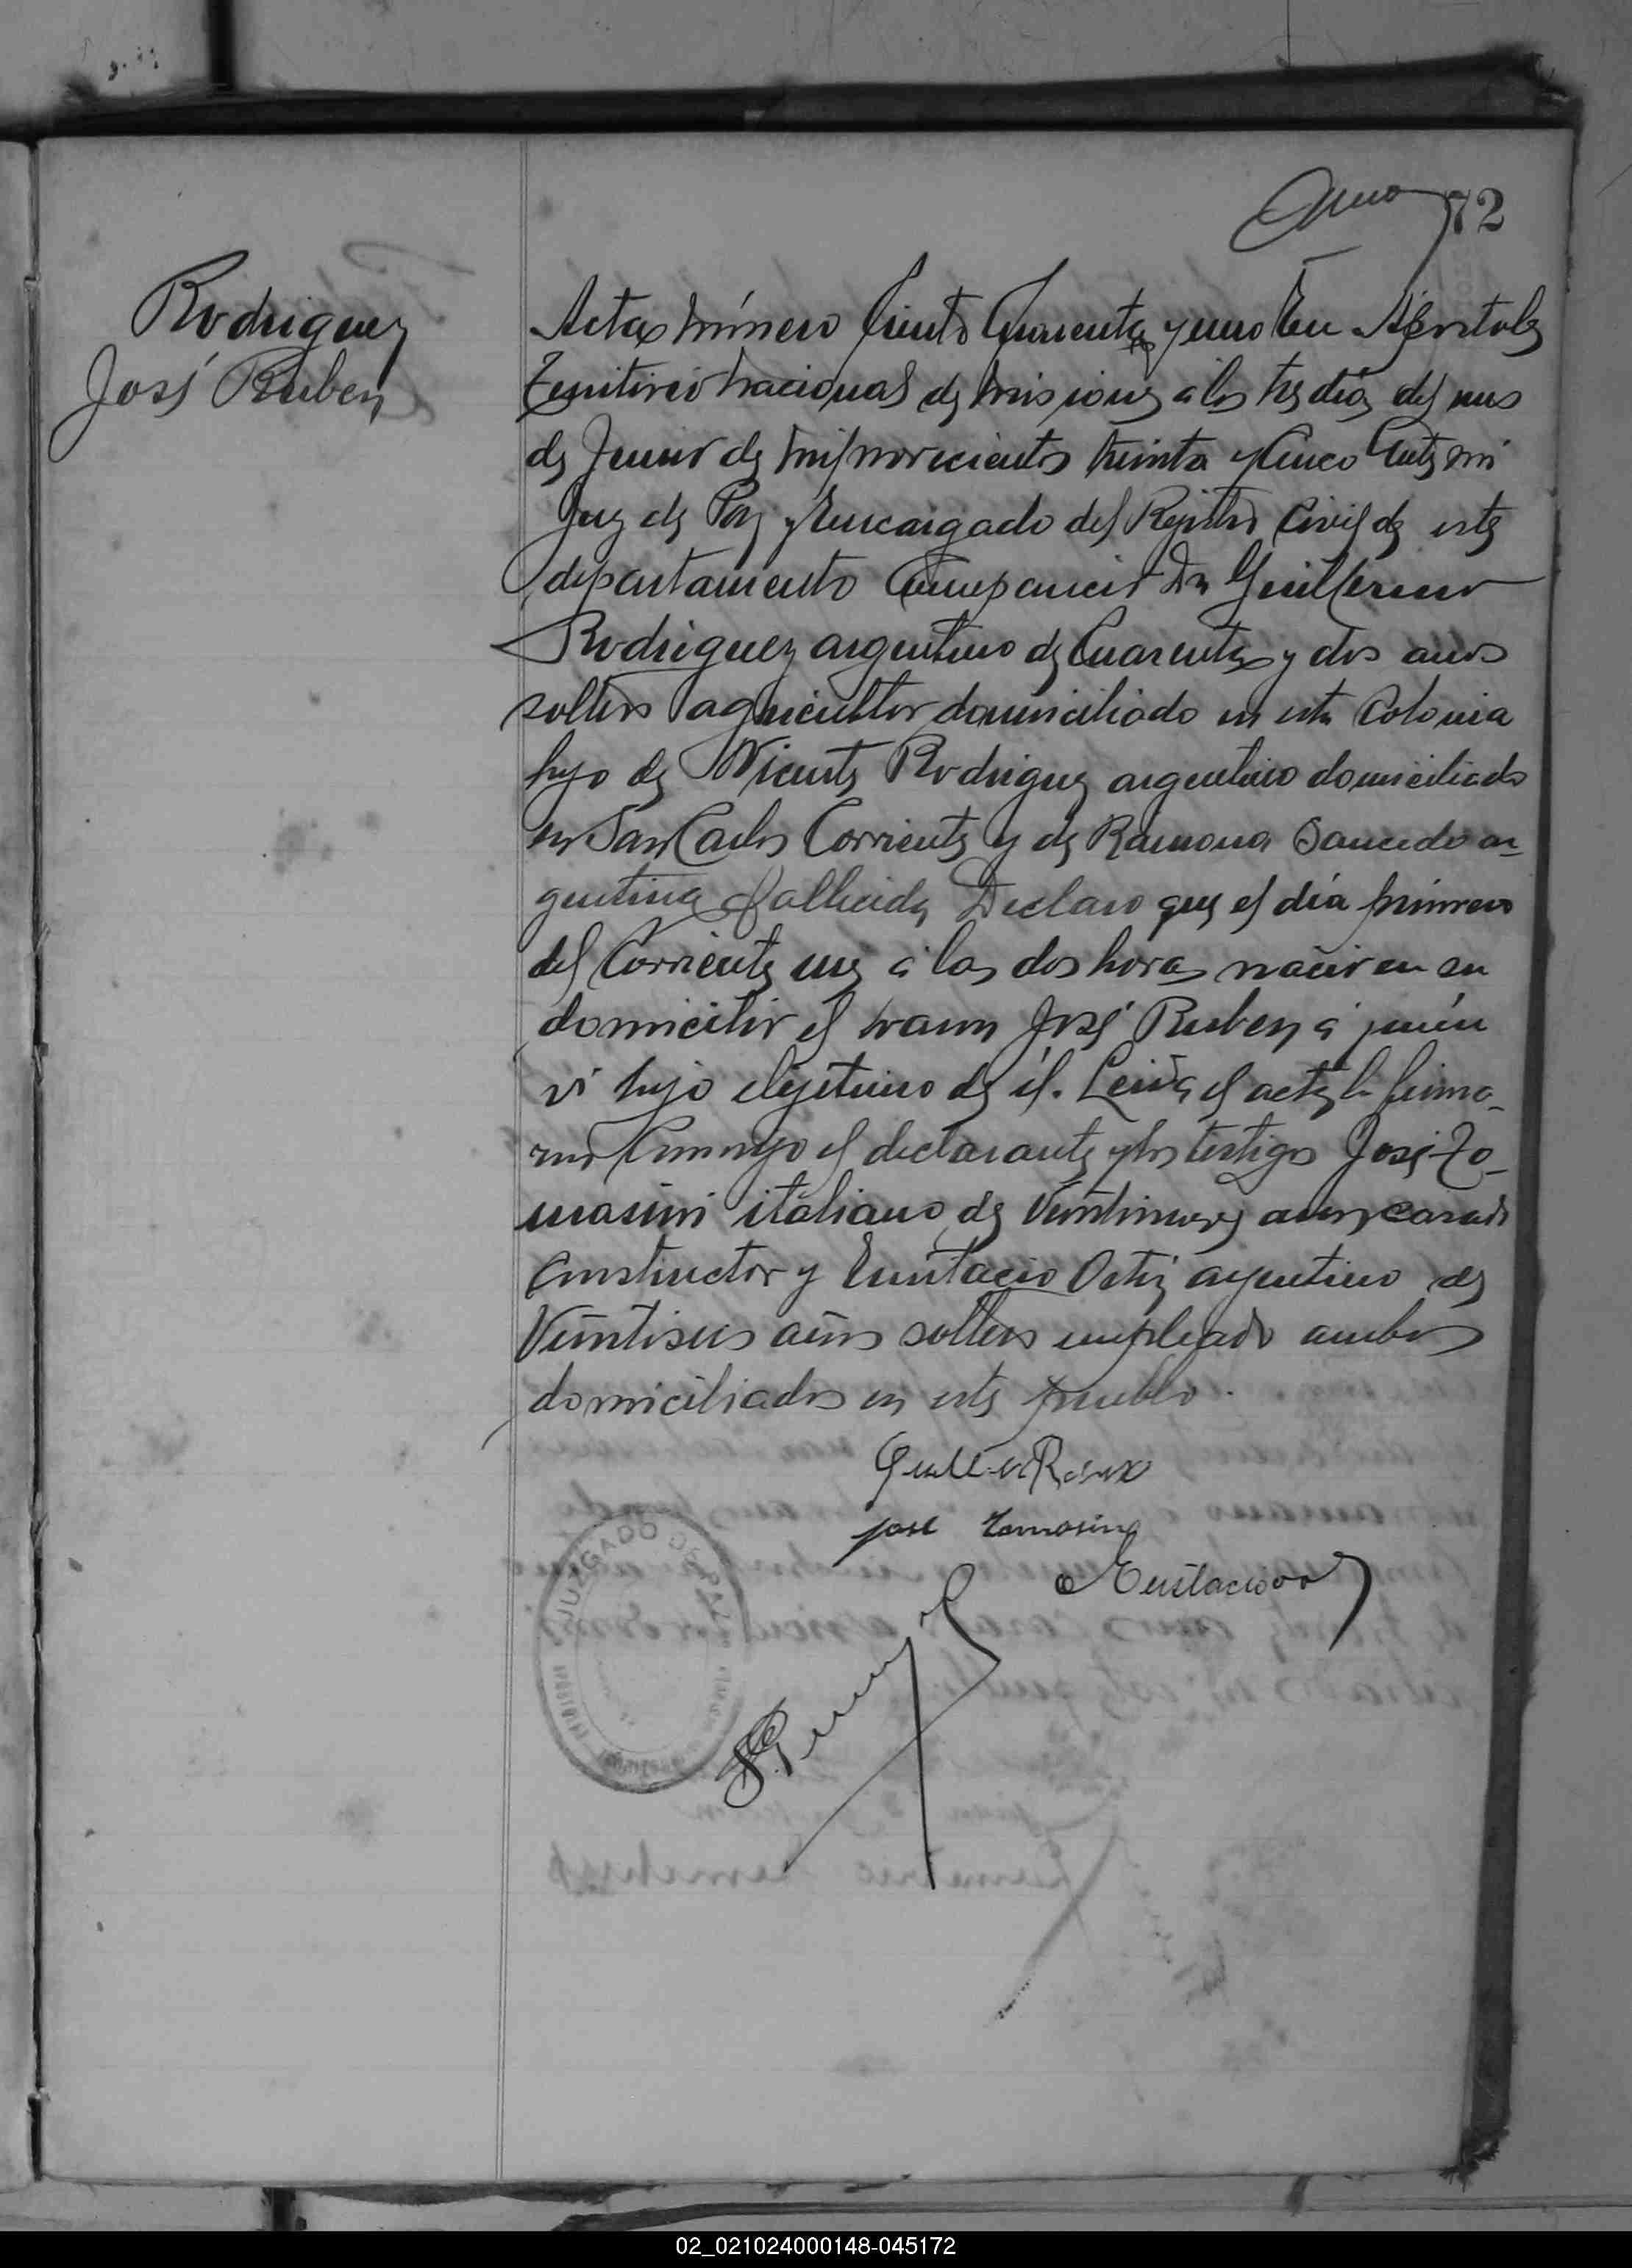 72
Rodriguez
José Ruben
Acta número Ciento Cuarenta y uno En Apóstoles
Territorio Nacional de Misiones a los tres dias del mes
de Junio de mil novecientos treinta y cinco Ante mi
Juez de Paz y Encargado del Rejistro Civil de este
departamento Compareció Dn Guillermo
Rodriguez argentino de Cuarenta y dos años
soltero agricultor domiciliado en esta Colonia
hijo de Vicente Rodriguez argentino domiciliado
en San Carlos Corrientes y de Ramona Saucedo ar-
gentina fallecida Declaro que el día primero
del Corriente mes á las dos horas nació en su
domicilio el varon José Ruben á quién
vi hijo ilejitimo de él. Leida el acta la firma-
ron Conmigo el declarante y los testigos José To-
masini italiano de Veintinueve años casado
Constructor y Eustacio Ortiz argentino de
Veintiseis años soltero empleado ambos
domiciliados en este pueblo.
José Tomasini
Eustacio
JUZGADO DE PAZ
02_021024000148-045172